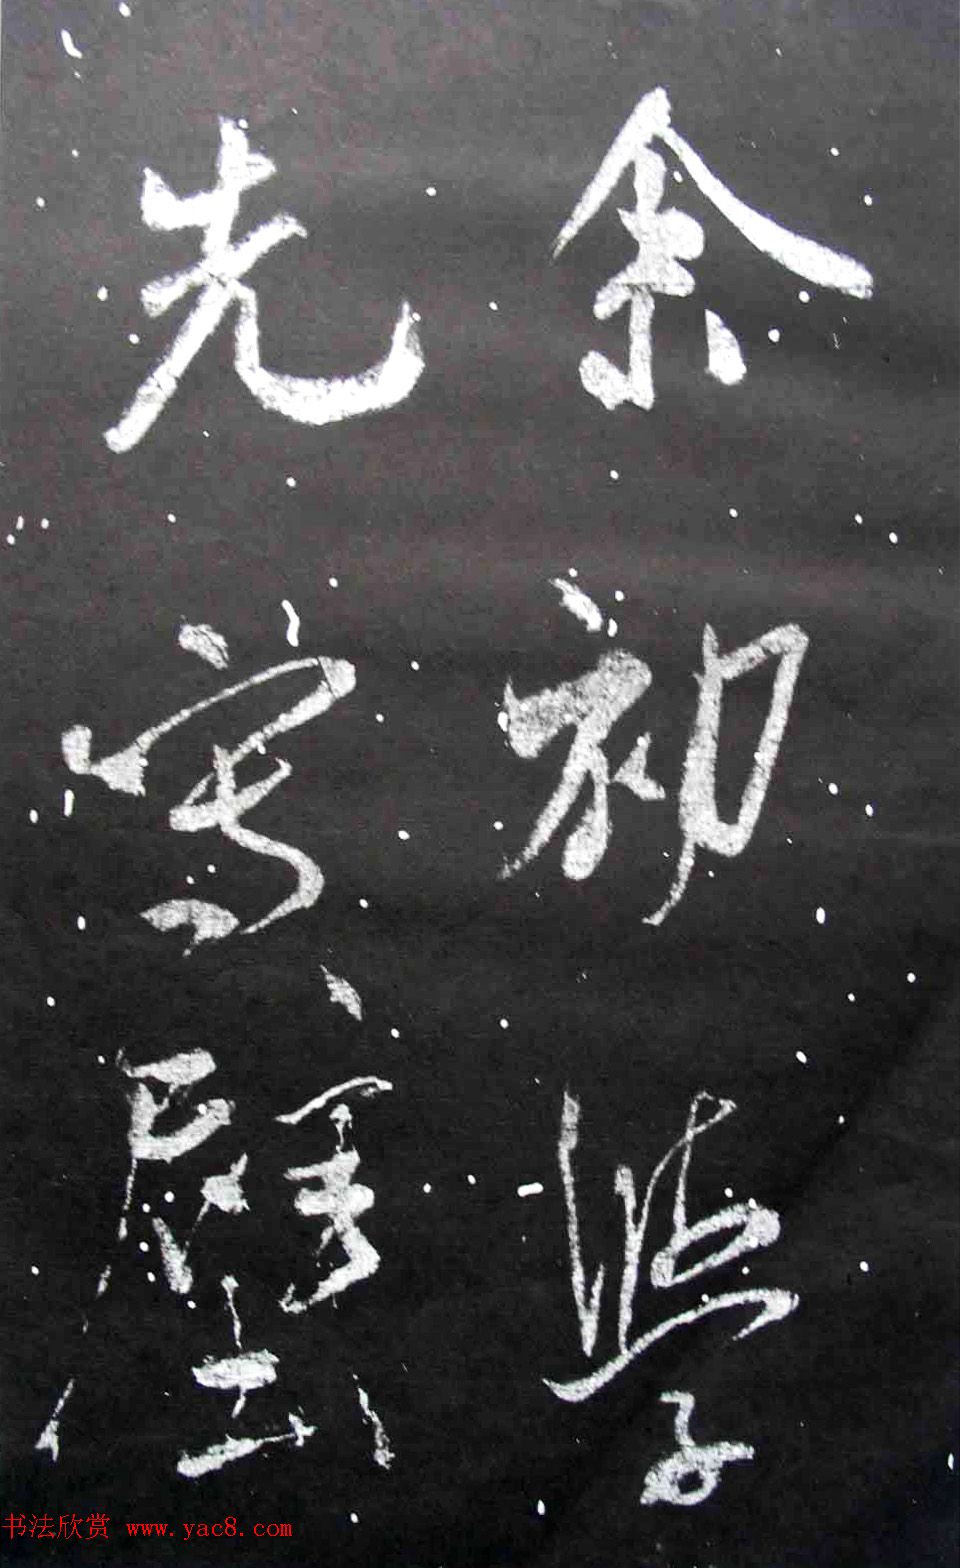 余初學
先寫壁
书法欣赏 www.yac8.com